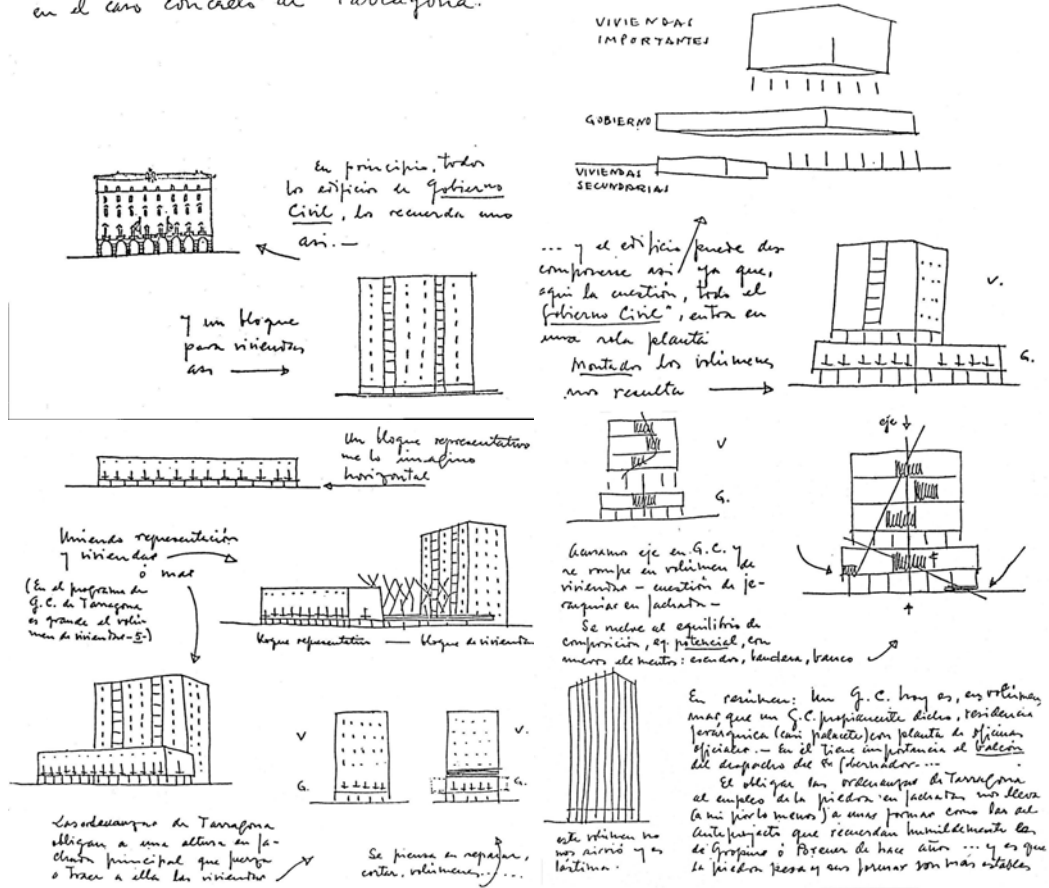 en el caso concreto de Tarragona.
En principio, todos
los edificios de Gobierno
Civil, los recuerda uno
asi.—
y un bloque
para viviendas
asi
Un bloque representativo
me lo imagino
horizontal
Uniendo representación
y viviendas
ó mas
(En el programa de
G.C. de Tarragona
es grande el volú-
men de viviendas -5-)
bloque representativo — bloque de viviendas
V
G.
V.
G.
Las ordenanzas de Tarragona
obligan a una altura en fa-
chada principal que fuerza
a traer a ella las viviendas
Se piensa en separar,
cortar, volúmenes......
VIVIENDAS
IMPORTANTES
GOBIERNO
VIVIENDAS
SECUNDARIAS
... y el edificio puede des
componerse asi ya que,
aqui la cuestión, todo el
"Gobierno Civil", entra en
una sola planta
Montados los volúmenes
nos resulta
V.
G.
V
G.
eje
Acusamos eje en G.C. y
se rompe en volúmen de
viviendas - cuestión de je-
rarquias en fachada -
Se vuelve al equilibrio de
composición, eq. potencial, con
nuevos elementos: escudos, bandera, banco
este volúmen no
nos sirvió y es
lástima.
En resúmen: Un G.C. hoy es, en volúmen
mas que un G.C. propiamente dicho, residencia
jerárquica (casi palacete) con planta de oficinas
oficiales. — En él tiene importancia el balcón
del despacho del Gobernador....
El obligar las ordenanzas de Tarragona
al empleo de la piedra en fachadas nos lleva
(a mi por lo menos) a unas formas como las del
anteproyecto que recuerdan humildemente las
de Gropius ó de hace años ... y es que
la piedra pesa y sus formas son más estables